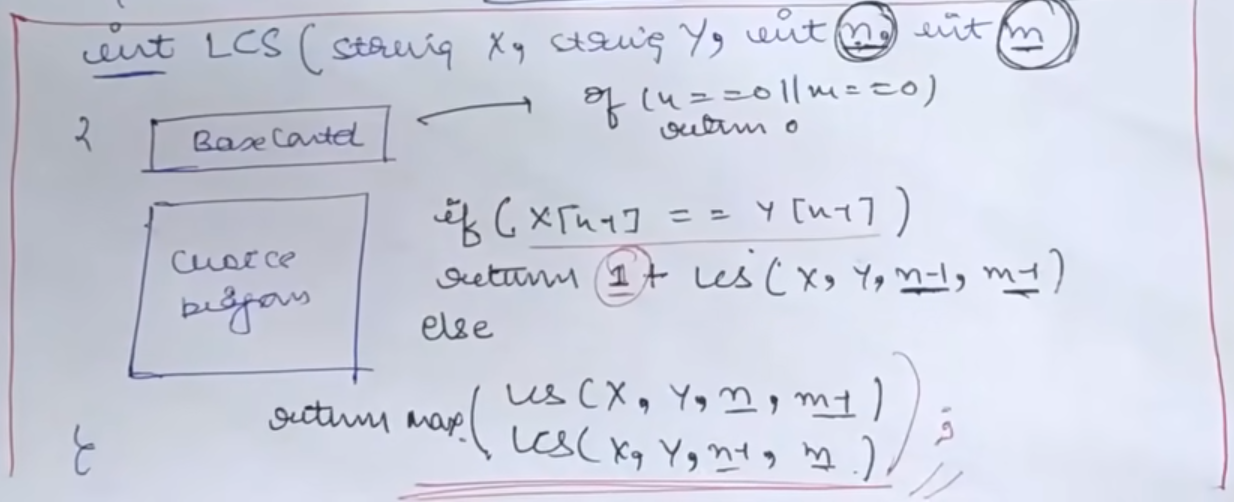 int LCS (string X, string Y, int n, int m
{ Base Condtn
if (n==0||m==0)
return 0
Choice
diagram
if (X[n-1] == Y[n-1])
return 1 + LCS (X, Y, n-1, m-1)
else
return max ( LCS (X, Y, n, m-1)
LCS (X, Y, n-1, m) ) ;
}